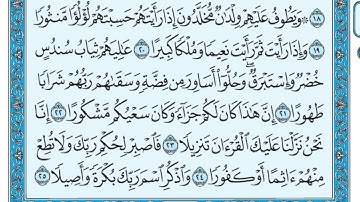 ١٨ ۞ وَيَطُوفُ عَلَيْهِمْ وِلْدَٰنٌ مُّخَلَّدُونَ إِذَا رَأَيْتَهُمْ حَسِبْتَهُمْ لُؤْلُؤًا مَّنثُورًا
١٩ وَإِذَا رَأَيْتَ ثَمَّ رَأَيْتَ نَعِيمًا وَمُلْكًا كَبِيرًا ٢٠ عَٰلِيَهُمْ ثِيَابُ سُندُسٍ
خُضْرٌ وَإِسْتَبْرَقٌ ۖ وَحُلُّوٓا۟ أَسَاوِرَ مِن فِضَّةٍ وَسَقَىٰهُمْ رَبُّهُمْ شَرَابًا
طَهُورًا ٢١ إِنَّ هَٰذَا كَانَ لَكُمْ جَزَآءً وَكَانَ سَعْيُكُم مَّشْكُورًا ٢٢ إِنَّا
نَحْنُ نَزَّلْنَا عَلَيْكَ ٱلْقُرْءَانَ تَنزِيلًا ٢٣ فَٱصْبِرْ لِحُكْمِ رَبِّكَ وَلَا تُطِعْ
مِنْهُمْ ءَاثِمًا أَوْ كَفُورًا ٢٤ وَٱذْكُرِ ٱسْمَ رَبِّكَ بُكْرَةً وَأَصِيلًا ٢٥